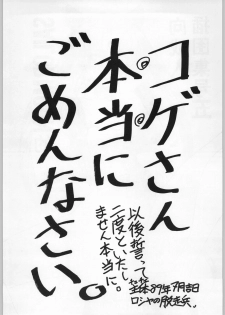 コゲさん
本当に
ごめんなさい。
以後誓って
二度といたし
ません本当に。
89年7月吉日
ロシヤの脱走兵、